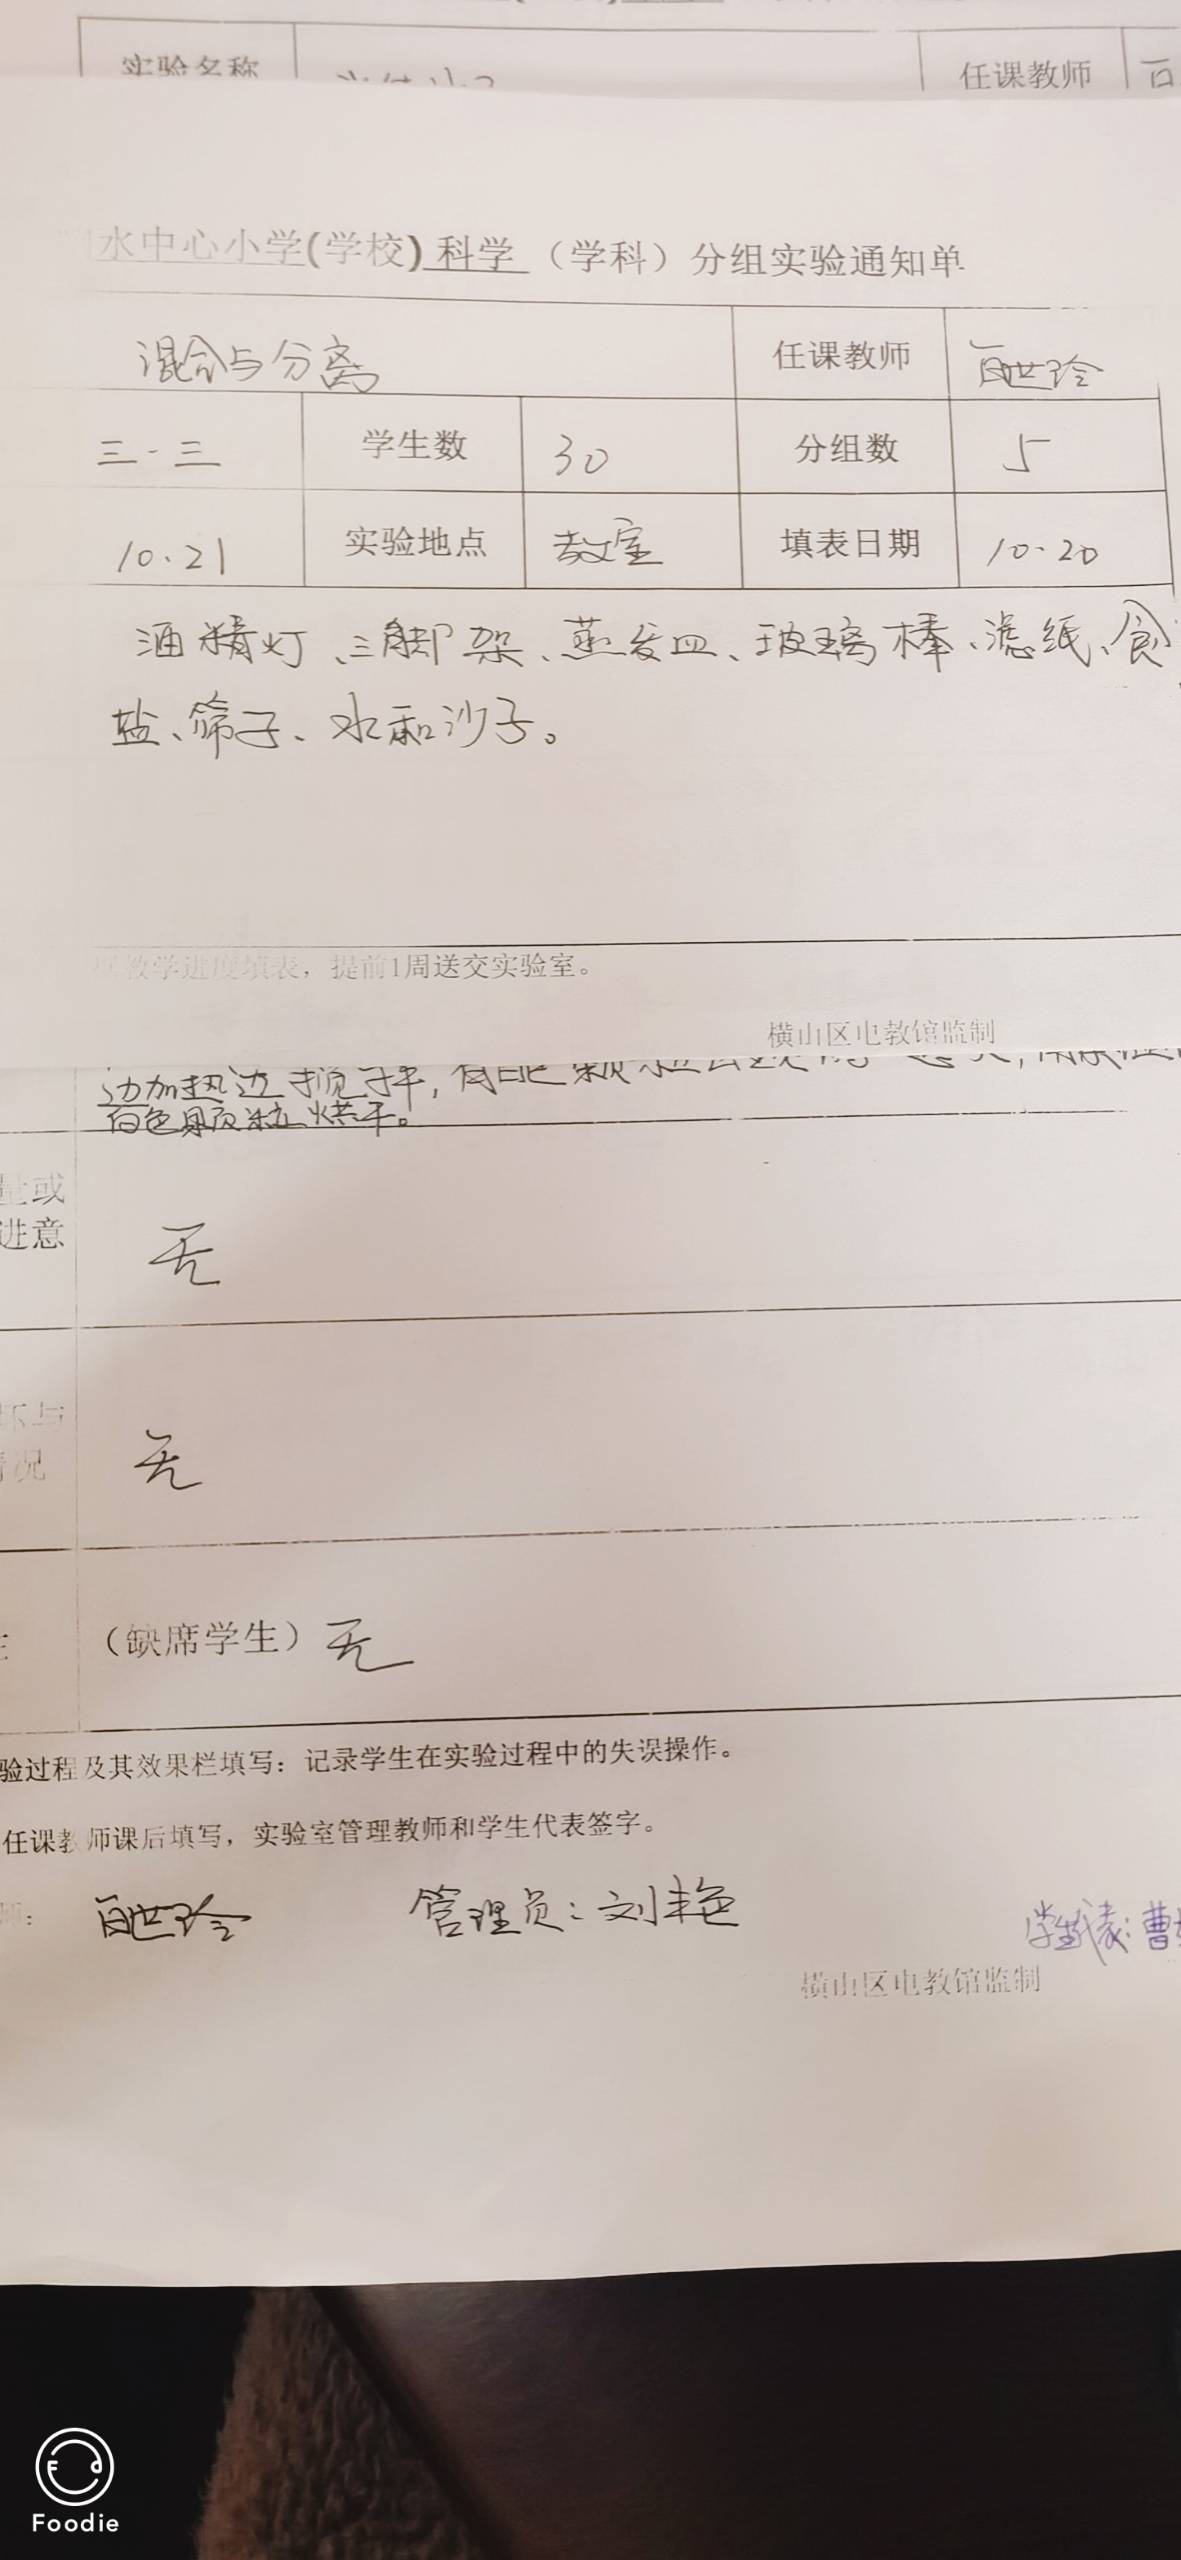 实验名称 任课教师
水中心小学(学校) 科学 （学科）分组实验通知单
混合与分离 任课教师 白世玲
三.三 学生数 30 分组数 5
10.21 实验地点 教室 填表日期 10.20
酒精灯、三脚架、蒸发皿、玻璃棒、滤纸、食
盐、筛子、水和沙子。
教学进度填表，提前1周送交实验室。
横山区电教馆监制
边加热边搅拌，有白色颗粒
白色颗粒烘干。
量或
进意
无
坏与
情况
无
（缺席学生）无
验过程及其效果栏填写：记录学生在实验过程中的失误操作。
任课教师课后填写，实验室管理教师和学生代表签字。
师： 白世玲 管理员：刘丰艳 学生代表：曹
横山区电教馆监制
Foodie